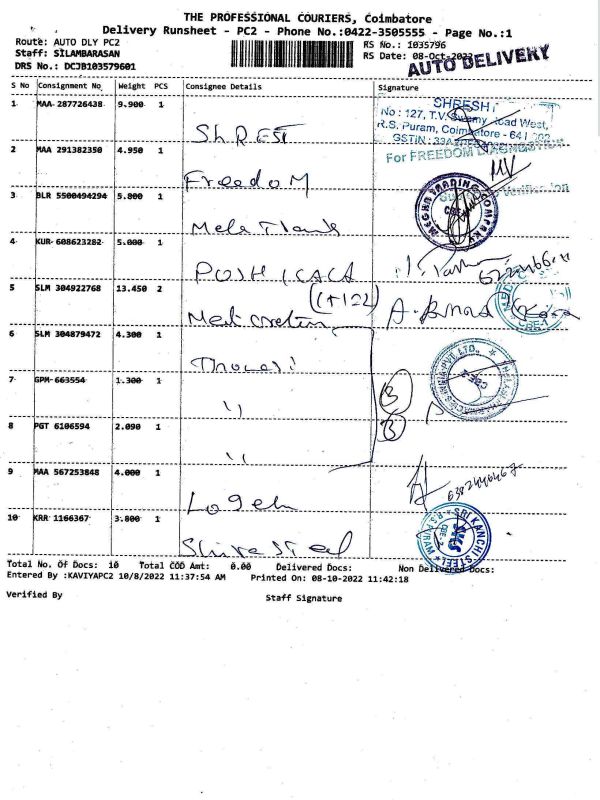 THE PROFESSIONAL COURIERS, Coimbatore
Delivery Runsheet - PC2 - Phone No.:0422-3505555 - Page No.:1
Route: AUTO DLY PC2
RS No.: 1035796
Staff: SILAMBARASAN
RS Date: 08-Oct-2022
DRS No.: DCJB103579601
AUTO DELIVERY
S No Consignment No Weight PCS Consignee Details Signature
1 MAA 287726438 9.900 1
SHRESHT
No : 127, T.V. Swamy Road West,
R.S. Puram, Coimbatore - 641 002
GSTIN : 33A
ShREST
2 MAA 291382350 4.950 1
For FREEDOM
Freedom
MV
3 BLR 5500494294 5.800 1
MEGHA TRADING COMPANY
Verification
4 KUR 608623282 5.000 1
POSHICACA
5 SLM 304922768 13.450 2
(1+1=2)
6 SLM 304879472 4.300 1
7 GPM 663554 1.300 1
"
3
8 PGT 6106594 2.090 1
"
3
9 MAA 567253848 4.000 1
6382446467
10 KRR 1166367 3.800 1
SRI KANCHI STEEL
Shiva Steel
Total No. Of Docs: 10 Total COD Amt: 0.00 Delivered Docs: Non Delivered Docs:
Entered By :KAVIYAPC2 10/8/2022 11:37:54 AM Printed On: 08-10-2022 11:42:18
Verified By
Staff Signature